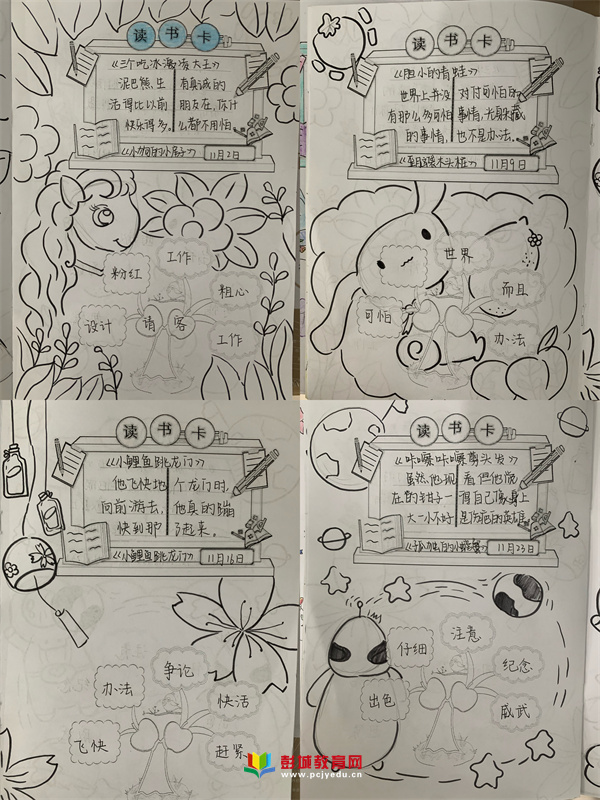 读书卡
《三个吃冰滴凌大王》
泥巴熊生 有真诚的
活得比以前 朋友在,你什
快乐得多。 么都不用怕
《小狗的小房子》 11月2日
工作
粉红
粗心
设计 请客
工作
读书卡
《胆小的青蛙》
世界上并没 对付可怕的
有那么多可怕 事情,光躲藏
的事情, 也不是办法。
11月9日
世界
而且
可怕
办法
读书卡
《小鲤鱼跳龙门》
他飞快地 个龙门时,
向前游去, 他真的蹦
快到那 了起来。
《小鲤鱼跳龙门》 11月16日
争论
办法
快活
飞快
赶紧
读书卡
《咔嚓咔嚓剪头发》
虽然他现 看但他觉
在的钳子一 得自己像身上
大一小不好 是伤疤的英雄。
11月23日
注意
仔细
纪念
出色
威武
彭城教育网
www.pcjyedu.cn